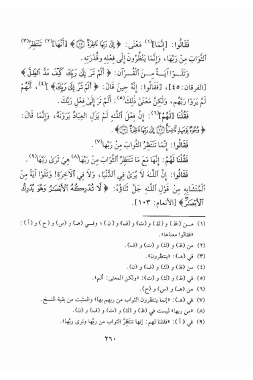 فقالوا: إنما(١) معنى: ﴿إِلَىٰ رَبِّهَا نَاظِرَةٌ ۝﴾ [أنها](٢) تنتظر(٣)
الثواب من ربها، وإنما ينظرون إلى فعله وقدرته.
وتلوا آية من القرآن: ﴿أَلَمْ تَرَ إِلَىٰ رَبِّكَ كَيْفَ مَدَّ الظِّلَّ﴾
[الفرقان: ٤٥]، [فقالوا: إنه حين قال: ﴿أَلَمْ تَرَ إِلَىٰ رَبِّكَ﴾](٤)، أنهم
لم يروا ربهم، ولكن معنى ذلك(٥): ألم تر إلى فعل ربك.
فقلنا [لهم](٦): إن فعل الله لم يزل العباد يرونه، وإنما قال:
﴿وُجُوهٌ يَوْمَئِذٍ نَاضِرَةٌ ۝ إِلَىٰ رَبِّهَا نَاظِرَةٌ ۝﴾.
فقالوا: إنما تنتظر الثواب من ربها(٧).
فقلنا لهم: إنها مع ما تنتظر الثواب من ربها(٨) هي ترى ربها(٩).
فقالوا: إن الله لا يرى في الدنيا، ولا في الآخرة! وتلوا آية من
المتشابه من قول الله جل ثناؤه: ﴿لَا تُدْرِكُهُ الْأَبْصَارُ وَهُوَ يُدْرِكُ
الْأَبْصَارَ﴾ [الأنعام: ١٠٣].
«فقالوا معناها».
(٣) في (هـ): «ينتظرون».
(٧) في (هـ): «إنما ينتظرون الثواب من ربهم بها» والمثبت من بقية النسخ.
(٩) في (أ): «فقلنا لهم: إنها تنتظر الثواب من ربها وترى ربها».
٢٦٠